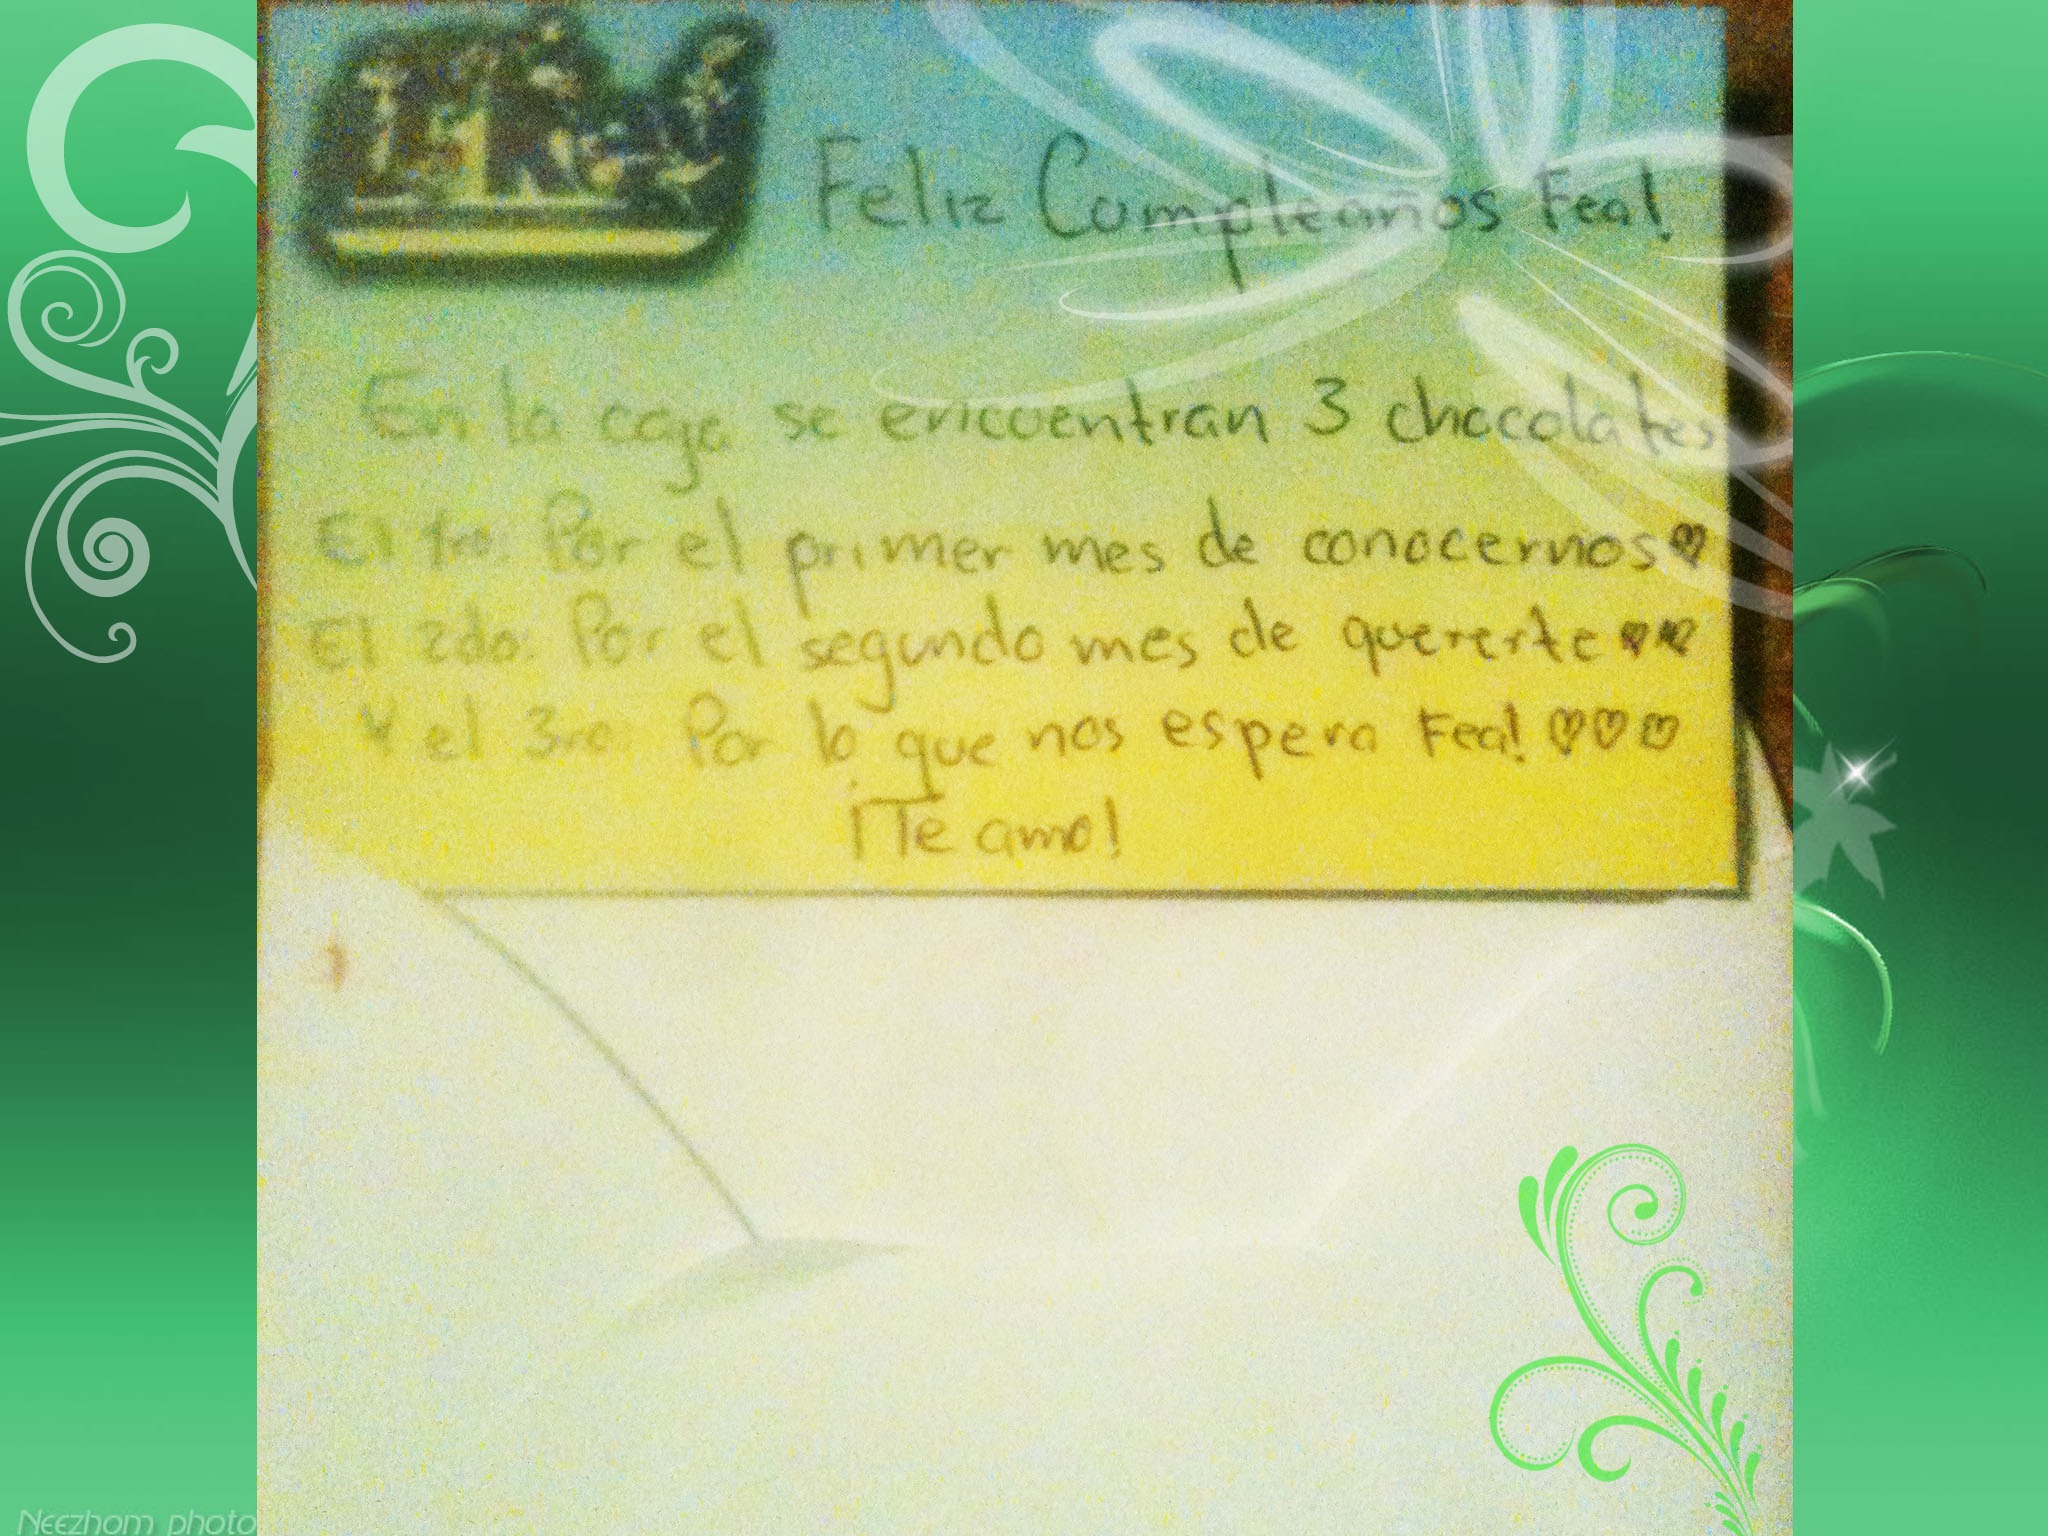 Feliz Cumpleaños Fea!
En la caja se encuentran 3 chocolates
El 1ro: Por el primer mes de conocernos♥
El 2do: Por el segundo mes de quererte♥♥
Y el 3ro: Por lo que nos espera Fea! ♡♡♡
¡Te amo!
Neezhom photo